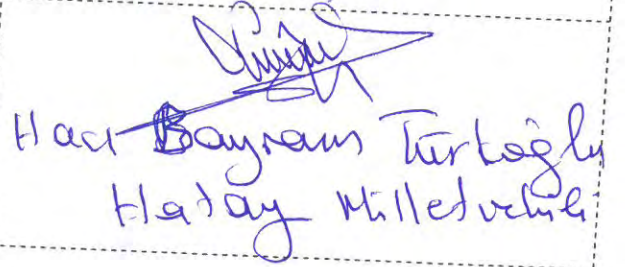 Hacı Bayram Türkoğlu
Hatay Milletvekili